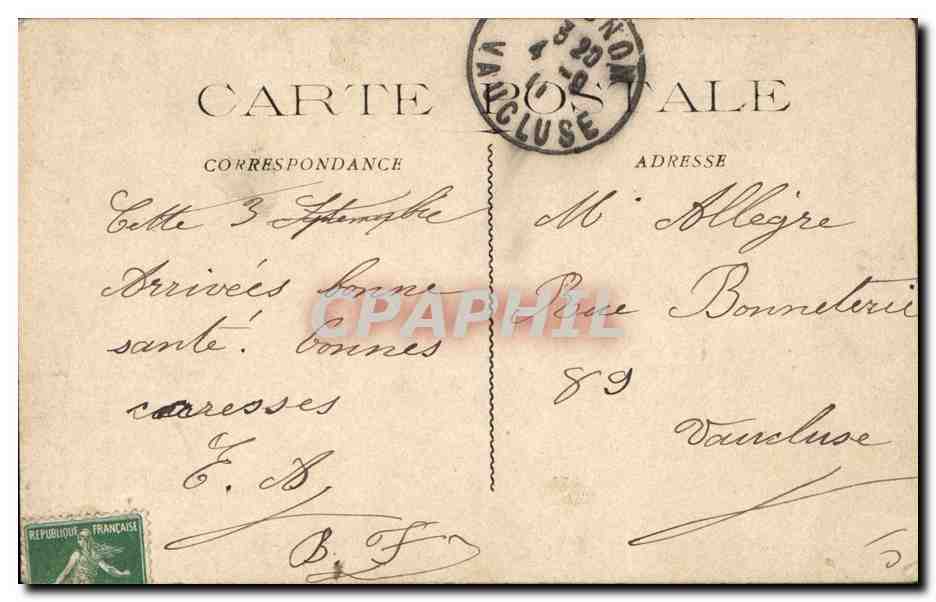 CARTE POSTALE
CORRESPONDANCE
Cette 3 Septembre
Arrivées bonne
santé! bonnes
caresses
E. A
B. F
ADRESSE
Mr Allègre
Rue Bonneterie
89
Vaucluse
NON
3 20
4
VAUCLUSE
REPUBLIQUE FRANÇAISE
CPAPHIL